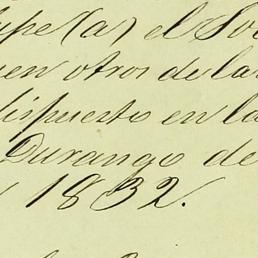 (a) el
otros de la
dispuesto en la
Durango de
1832.